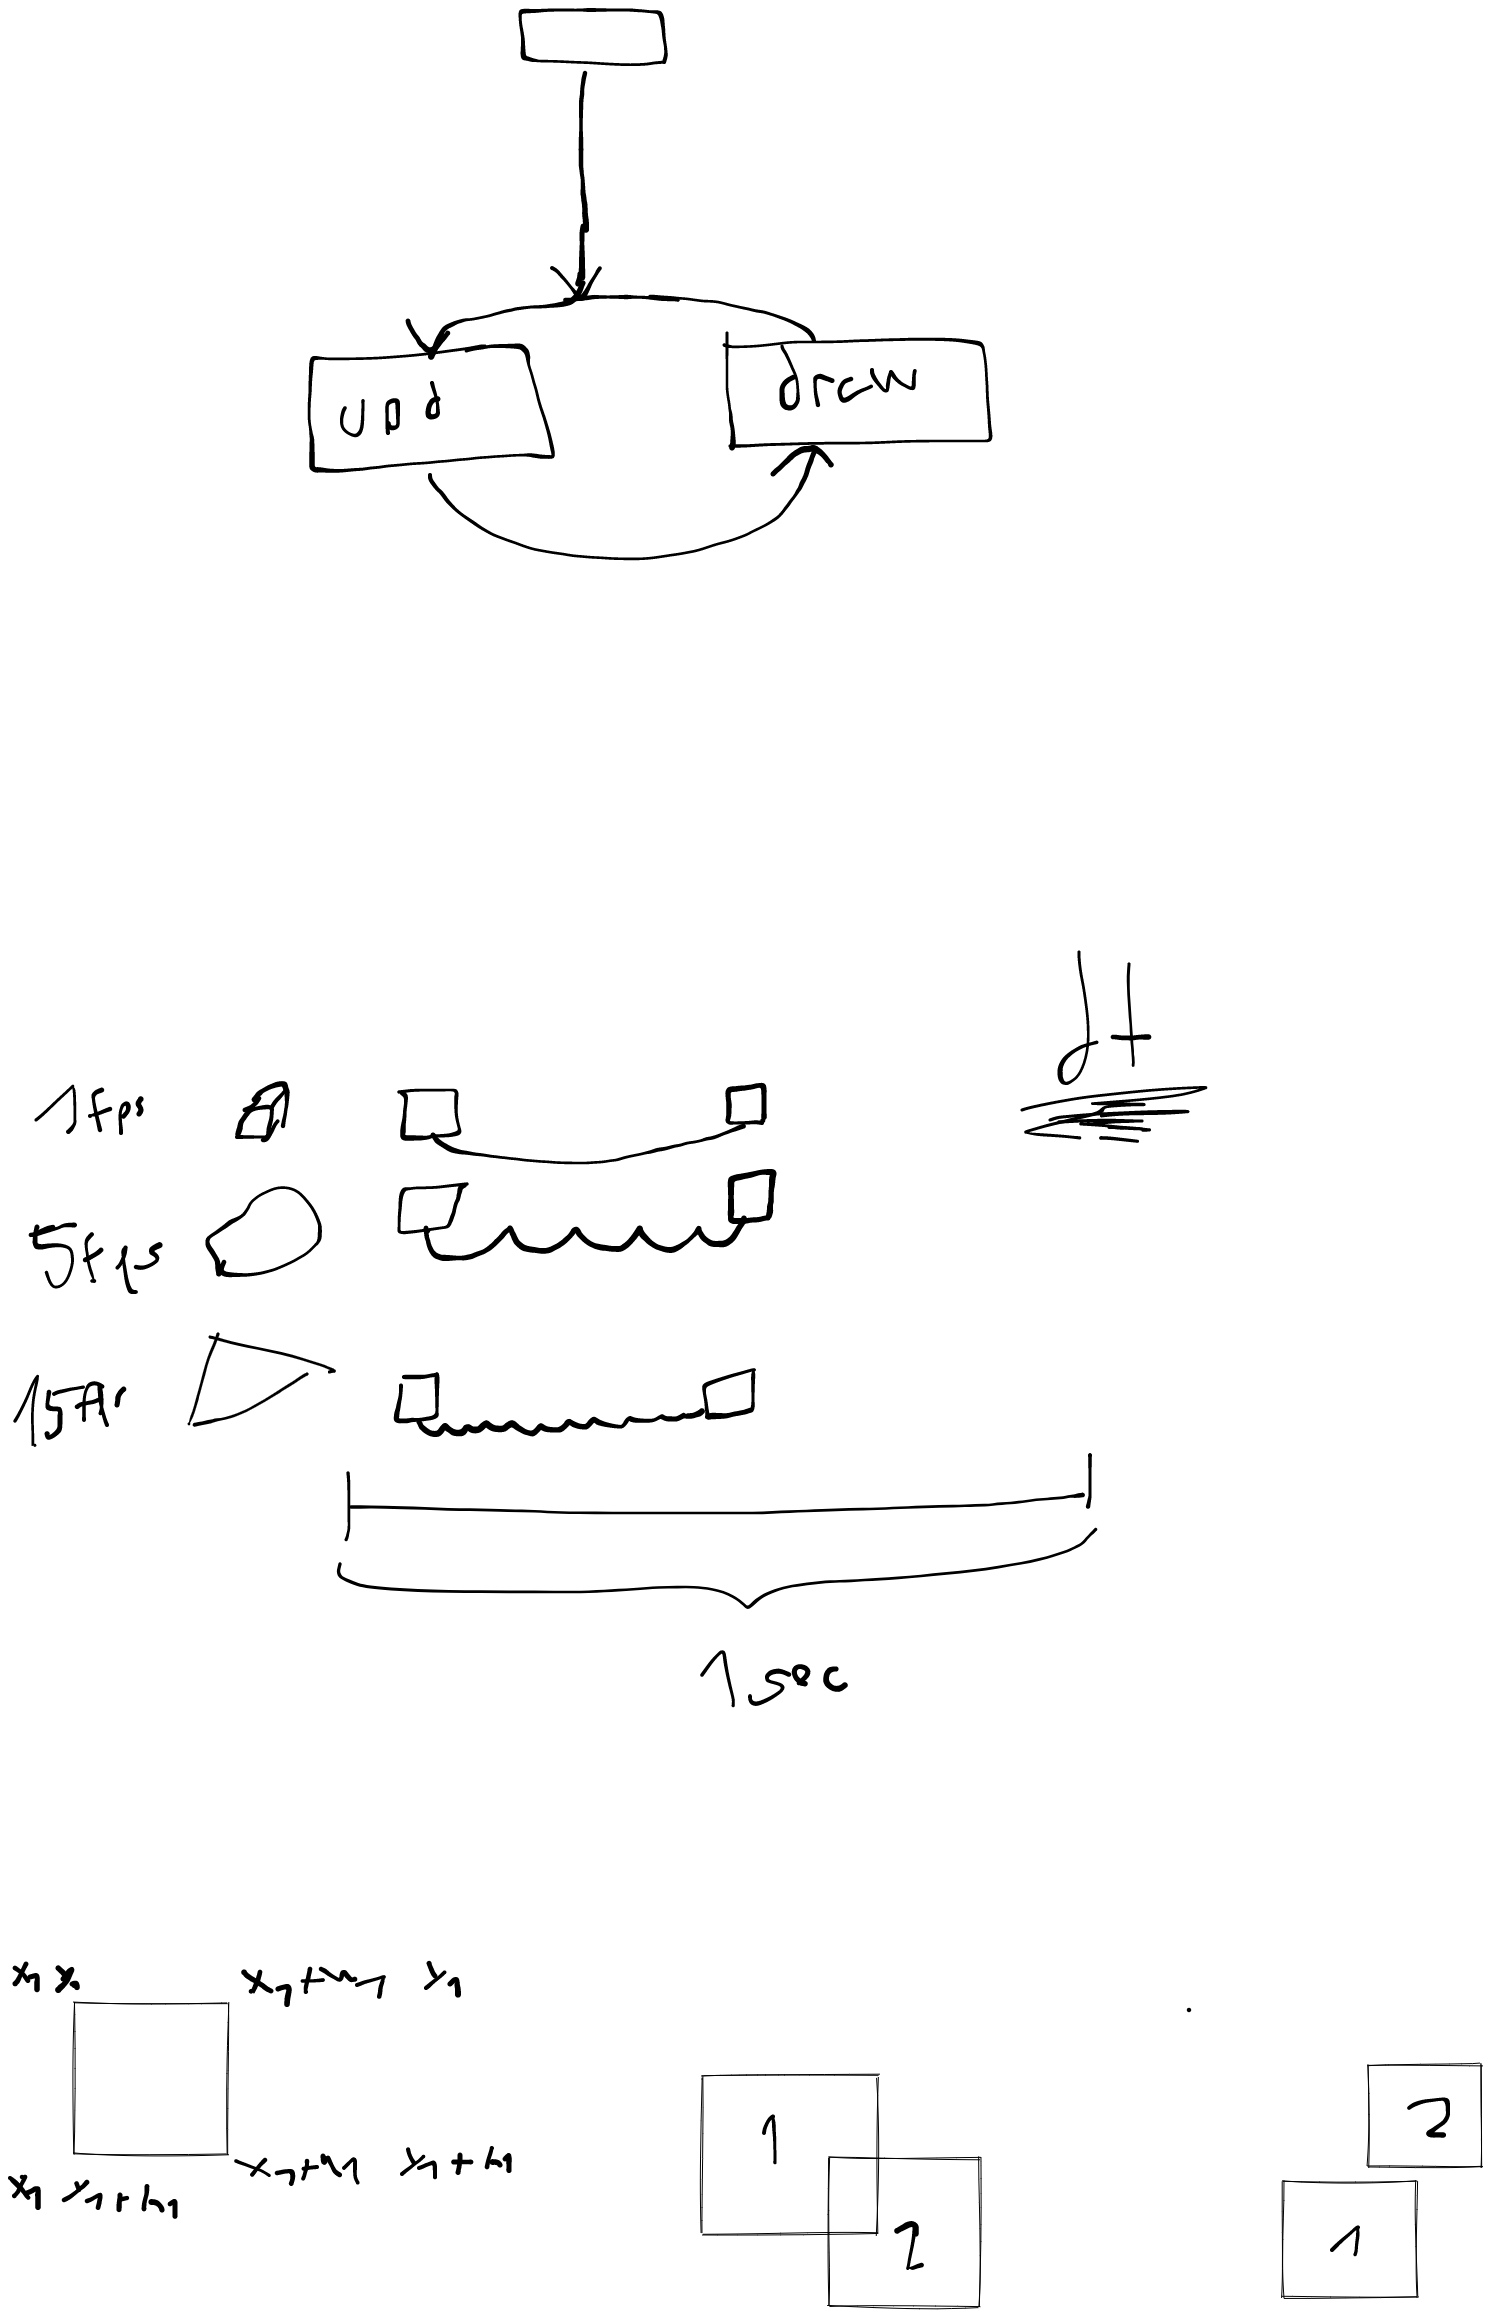 upd
draw
dt
1fps
5fps
15fps
1sec
x1 y1
x1+w1 y1
x1+w1 y1+h1
x1 y1+h1
1
2
2
1